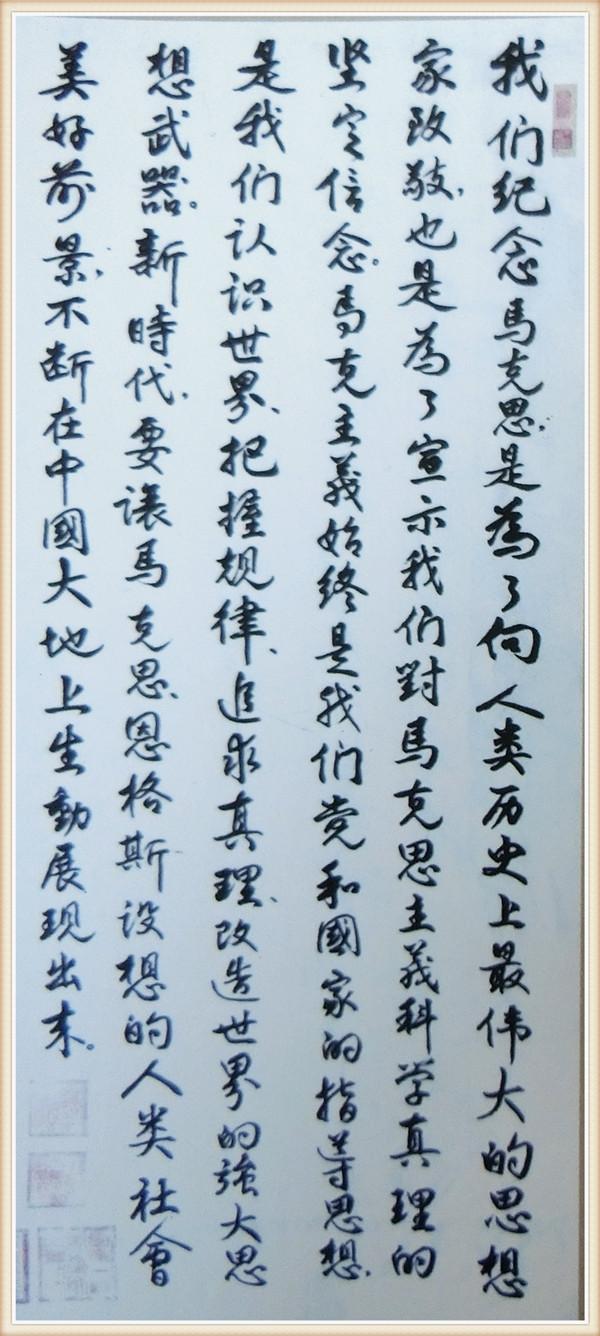 我们纪念馬克思.是為了向人类历史上最伟大的思想
家致敬.也是為了宣示我们對馬克思主義科学真理的
坚定信念.馬克主義始终是我们党和國家的指导思想.
是我们认识世界、把握规律、追求真理、改造世界的強大思
想武器.新時代.要讓馬克思.恩格斯设想的人类社會
美好前景.不断在中國大地上生動展现出来。